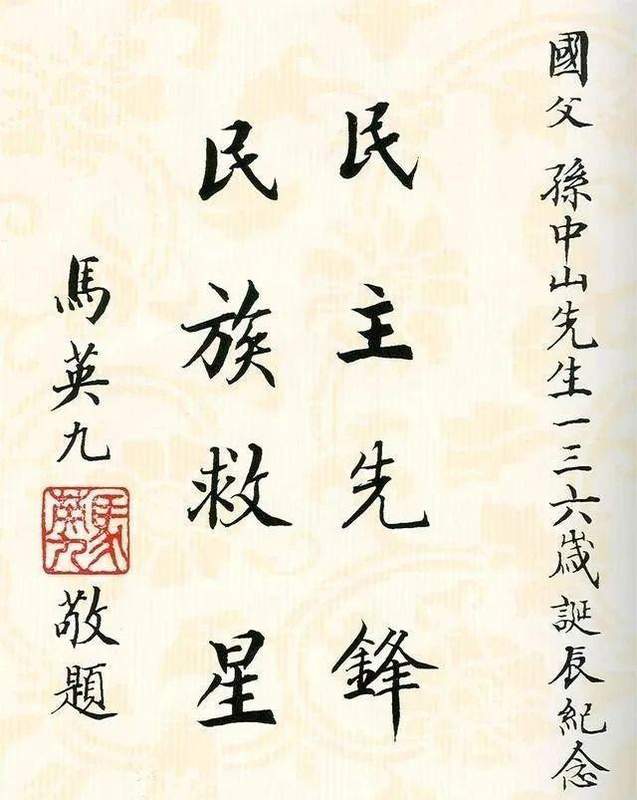 國父 孫中山先生一三六歲誕辰紀念
民主先鋒
民族救星
馬英九
馬英九
敬題